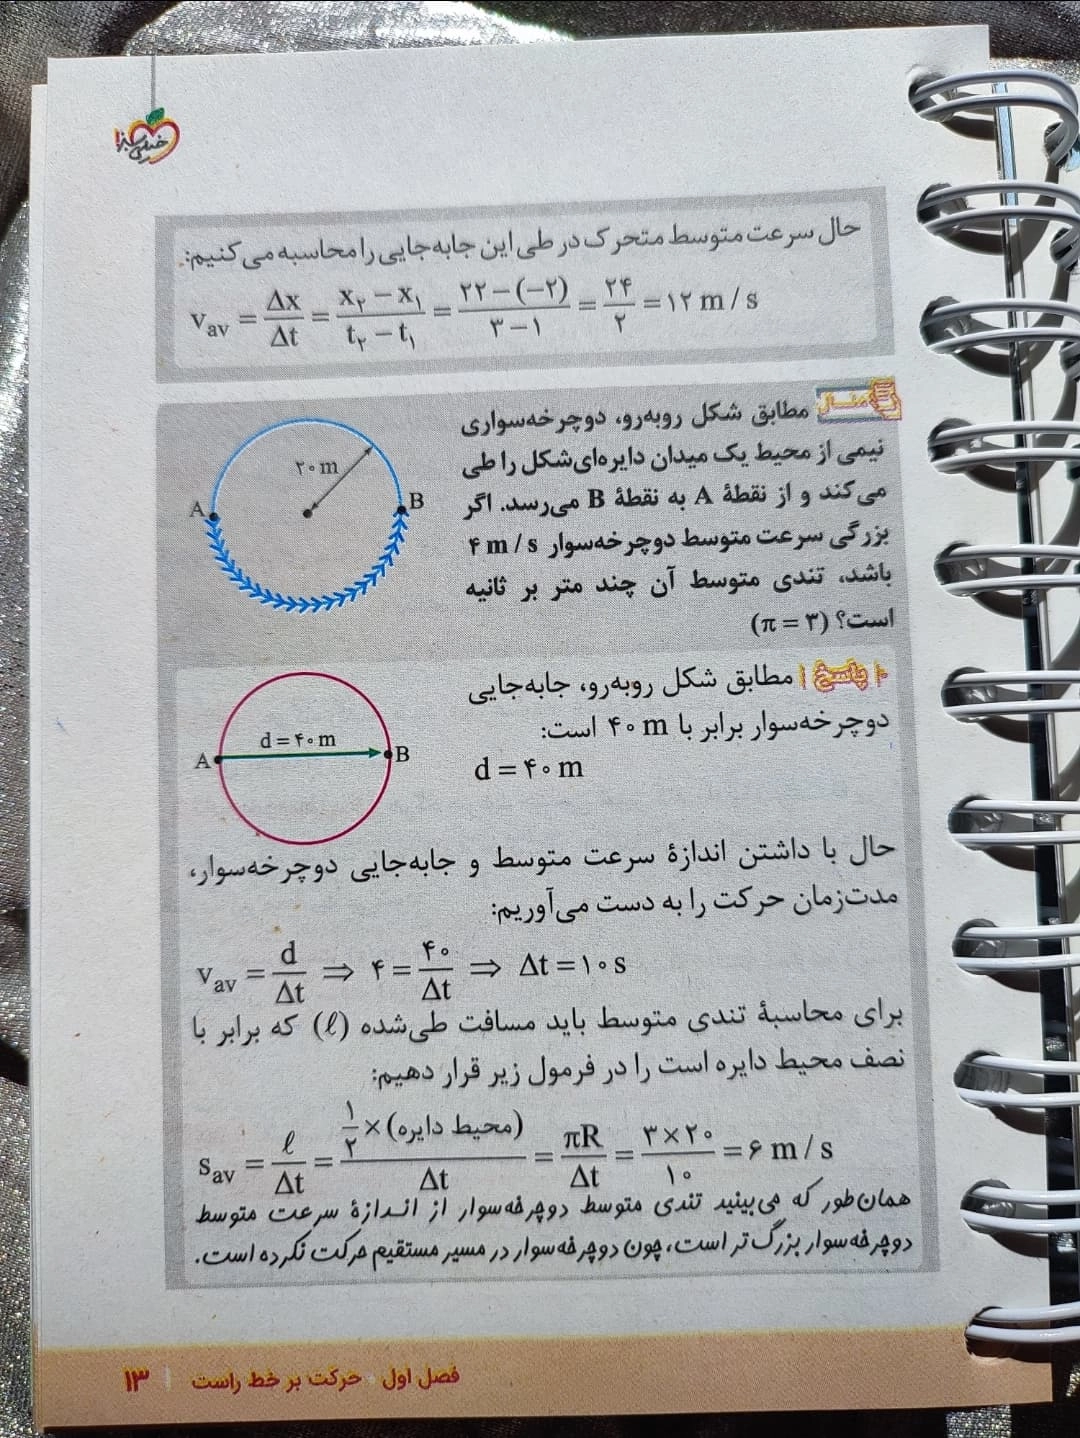 خیلی سبز!
حال سرعت متوسط متحرک در طی این جابه‌جایی را محاسبه می‌کنیم:
v_av = Δx / Δt = (x₂ − x₁) / (t₂ − t₁) = (۲۲ − (−۲)) / (۳ − ۱) = ۲۴ / ۲ = ۱۲ m / s
مثال مطابق شکل روبه‌رو، دوچرخه‌سواری
نیمی از محیط یک میدان دایره‌ای‌شکل را طی
می‌کند و از نقطهٔ A به نقطهٔ B می‌رسد. اگر
بزرگی سرعت متوسط دوچرخه‌سوار ۴ m / s
باشد، تندی متوسط آن چند متر بر ثانیه
است؟ (π = ۳)
۲۰ m
A
B
پاسخ مطابق شکل روبه‌رو، جابه‌جایی
دوچرخه‌سوار برابر با ۴۰ m است:
d = ۴۰ m
d = ۴۰ m
A
B
حال با داشتن اندازهٔ سرعت متوسط و جابه‌جایی دوچرخه‌سوار،
مدت‌زمان حرکت را به دست می‌آوریم:
v_av = d / Δt ⇒ ۴ = ۴۰ / Δt ⇒ Δt = ۱۰ s
برای محاسبهٔ تندی متوسط باید مسافت طی‌شده (ℓ) که برابر با
نصف محیط دایره است را در فرمول زیر قرار دهیم:
s_av = ℓ / Δt = ۱/۲ × (محیط دایره) / Δt = πR / Δt = ۳ × ۲۰ / ۱۰ = ۶ m / s
همان‌طور که می‌بینید تندی متوسط دوچرخه‌سوار از اندازهٔ سرعت متوسط
دوچرخه‌سوار بزرگ‌تر است، چون دوچرخه‌سوار در مسیر مستقیم حرکت نکرده است.
فصل اول حرکت بر خط راست | ۱۳